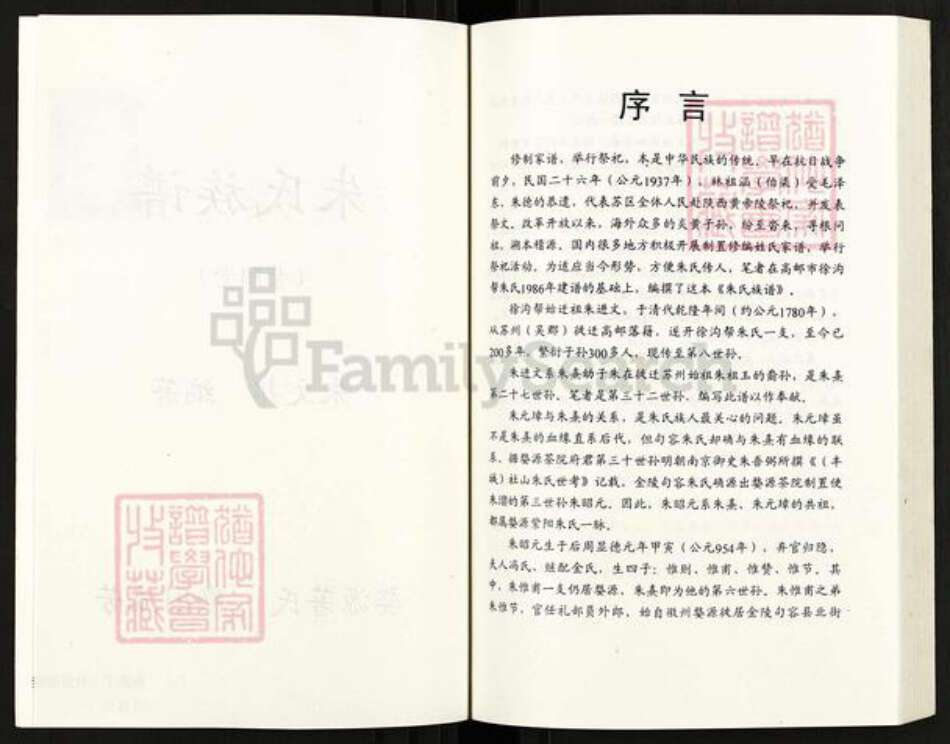 序 言
修制家谱，举行祭祀，本是中华民族的传统，早在抗日战争
前夕，民国二十六年（公元1937年），林祖涵（伯渠）受毛泽
东、朱德的恭遣，代表苏区全体人民赴陕西黄帝陵祭祀，并发表
祭文。改革开放以来，海外众多的炎黄子孙，纷至沓来，寻根问
祖，溯本穑源。国内很多地方积极开展制置修编姓氏家谱，举行
祭祀活动。为适应当今形势，方便朱氏传人，笔者在高邮市徐沟
帮朱氏1986年建谱的基础上，编撰了这本《朱氏族谱》。
徐沟帮始迁祖朱进文，于清代乾隆年间（约公元1780年），
从苏州（吴郡）拨迁高邮落籍，遂开徐沟帮朱氏一支，至今已
200多年，繁衍子孙300多人，现传至第八世孙。
朱进文系朱熹幼子朱在拨迁苏州始祖朱祖玉的裔孙，是朱熹
第二十七世孙。笔者是第三十二世孙，编写此谱以作奉献。
朱元璋与朱熹的关系，是朱氏族人最关心的问题。朱元璋虽
不是朱熹的血缘直系后代，但句容朱氏却确与朱熹有血缘的联
系。据婺源茶院府君第三十世孙明朝南京御史朱吾弼所撰《（丰
城）社山朱氏世考》记载，金陵句容朱氏确源出婺源茶院制置使
朱瓌的第三世孙朱昭元。因此，朱昭元系朱熹、朱元璋的共祖，
都属婺源紫阳朱氏一脉。
朱昭元生于后周显德元年甲寅（公元954年），弃官归隐，
夫人冯氏、继配金氏，生四子：惟则、惟甫、惟贊、惟节。其
中，朱惟甫一支仍居婺源，朱熹即为他的第六世孙。朱惟甫之弟
朱惟节，官任礼部员外郎，始自徽州婺源拨居金陵句容县北街
FamilySearch
朱氏族谱